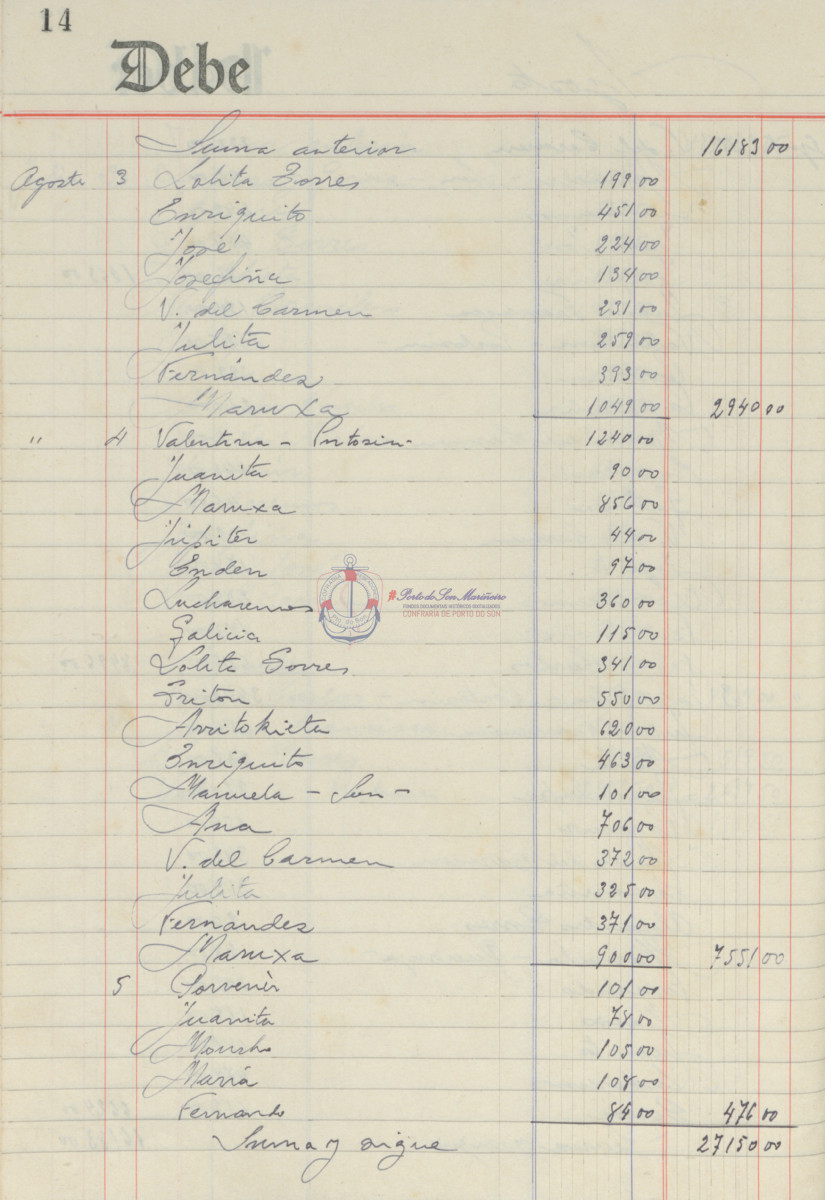 14
Debe
Suma anterior 16183 00
Agosto 3 Lolita Torres 199 00
Enriquito 451 00
José 224 00
Josechiña 134 00
V. del Carmen 231 00
Julita 259 00
Fernández 393 00
Maruxa 1049 00 2940 00
" 4 Valentina - Portosin - 1240 00
Juanita 90 00
Maruxa 856 00
Júpiter 44 00
Enden 97 00
Lucharemos 360 00
Galicia 115 00
Lolita Torres 341 00
Triton 550 00
Arritokieta 620 00
Enriquito 463 00
Manuela - Son - 101 00
Ana 706 00
V. del Carmen 372 00
Julita 325 00
Fernández 371 00
Maruxa 900 00 7551 00
5 Porvenir 101 00
Juanita 78 00
Moncho 105 00
María 108 00
Fernando 84 00 476 00
Suma y sigue 27150 00
Porto do Son Mariñeiro
FONDOS DOCUMENTAIS HISTÓRICOS DIXITALIZADOS
CONFRARIA DE PORTO DO SON